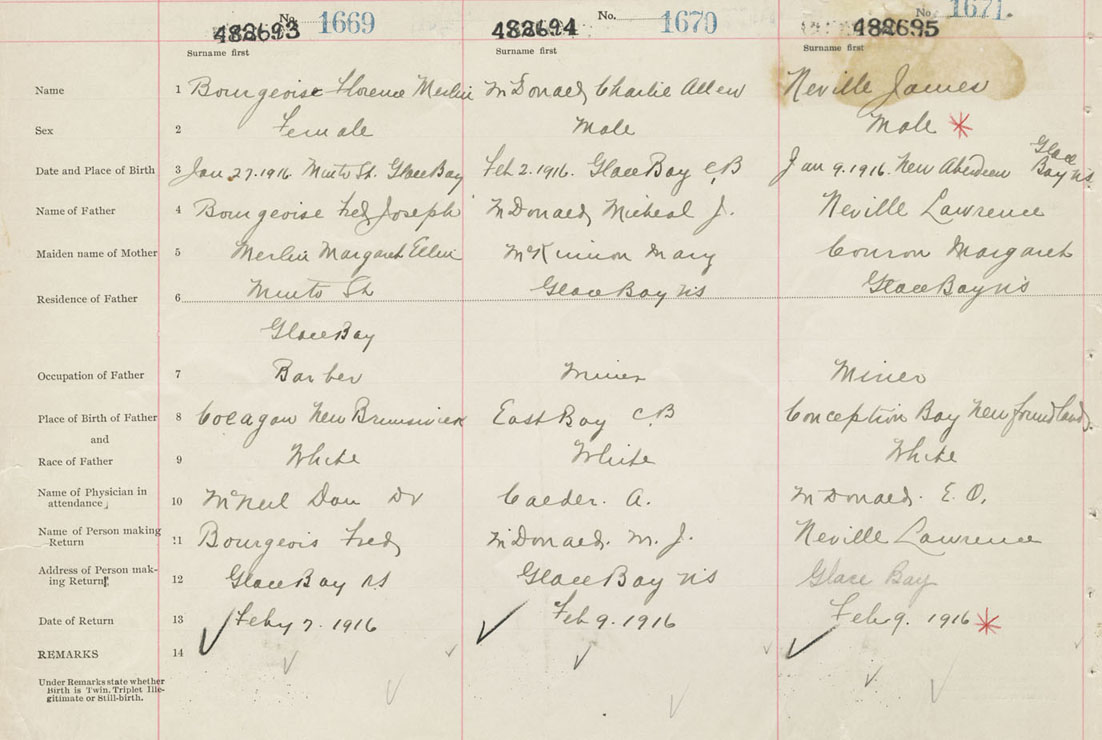 No. 1669 No. 1670 No. 1671.
482693 482694 482695
Surname first Surname first Surname first
Name 1 Bourgeoise Florence Merlin McDonald, Charlie Allen Neville James
Sex 2 Female Male Male *
Glace
Date and Place of Birth 3 Jan 27.1916 Minto St. Glace Bay Feb 2.1916. Glace Bay C.B Jan 9.1916. New Aberdeen Bay NS
Name of Father 4 Bourgeoise Fred Joseph McDonald, Micheal J. Neville Lawrence
Maiden name of Mother 5 Merlin Margaret Ellen McKinnon Mary Conron Margaret
Residence of Father 6 Minto St Glace Bay NS Glace Bay NS
Glace Bay
Occupation of Father 7 Barber Miner Miner
Place of Birth of Father 8 Cocagan New Brunswick East Bay C.B Conception Bay New foundland.
and
Race of Father 9 White White White
Name of Physician in
attendance 10 McNeil Dan Dr Calder. A. McDonald. E. O.
Name of Person making
Return 11 Bourgeois Fred McDonald. M. J. Neville Lawrence
Address of Person mak-
ing Return 12 Glace Bay NS Glace Bay NS Glace Bay
Date of Return 13 Feby 7. 1916 Feb 9. 1916 Feb 9. 1916 *
REMARKS 14
Under Remarks state whether
Birth is Twin, Triplet Ille-
gitimate or Still-birth.